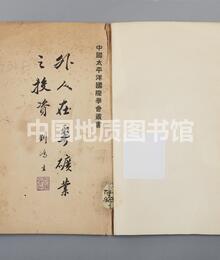 外人在華礦業
之投資 劉鴻生
中國太平洋國際學會叢書
中国地质图书馆